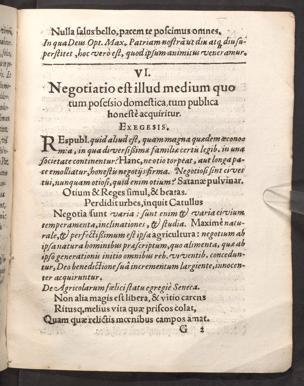 Nulla salus bello, pacem te poscimus omnes.
In qua Deus Opt. Max, Patriam nostrā ut diu atq́ diu su-
perstitet, hoc verò est, quod ipsum animitus veneramur.
VI.
Negotiatio est illud medium quo
tum possessio domestica, tum publica
honestè acquiritur.
EXEGESIS.
Respubl. quid aliud est, quàm magna quædem œcono
mia, in qua diversissimæ familiæ certis legib. in una
societate continentur? Hanc, ne otio torpeat, aut longa pa-
ce emolliatur, honestis negotijs firma. Negotiosi sint ci ves
tui, nunquam otiosi, quid enim otium? Satanæ pulvinar.
Otium & Reges simul, & beatas.
Perdidit urbes, inquit Catullus
Negotia sunt varia: sunt enim & varia civium
temperamenta, inclinationes, & studia. Maximè natu-
rale, & perfectissimum est ipsa agricultura: negotium ab
ipsa natura hominibus præscriptum, quo alimenta, quæ ab
ipso generationis initio omnibus reb. viventib. conceduн-
tur, Deo benedictione suâ incrementum largiente, innocen-
ter acquiruntur.
De Agricolarum fœlici statu egregiè Seneca.
Non alia magis est libera, & vitio carens
Ritusq́, melius vita quæ priscos colat,
Quàm quæ relictis mœnibus campos amat.
G 2